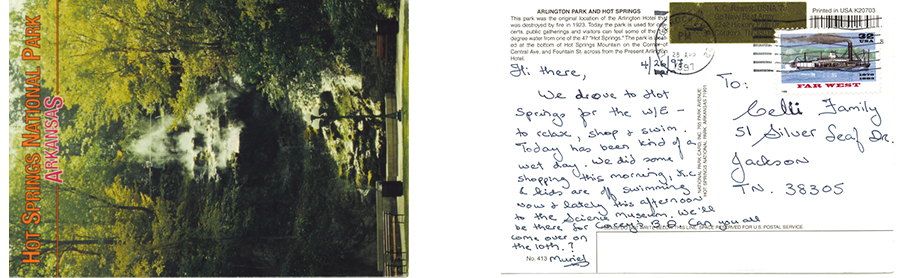 HOT SPRINGS NATIONAL PARK
ARKANSAS
ARLINGTON PARK AND HOT SPRINGS
This park was the original location of the Arlington Hotel that
was destroyed by fire in 1923. Today the park is used for
public gatherings and visitors can feel some of the
degree water from one of the 47 "Hot Springs." The park is
ed at the bottom of Hot Springs Mountain on the Corner of
Central Ave. and Fountain St. across from the Present Arlington
Hotel.
4/26/97
Hi there,
We drove to Hot
Springs for the W/E –
to relax, shop & swim.
Today has been kind of a
wet day. We did some
shopping this morning,
& kids are off swimming
now & lately this afternoon
to the Science Museum. We'll
be there for Corey's B.D. Can you all
come over on
the 10th.?
No. 413
Muriel
NATIONAL PARK CARD, INC. 760 PARK AVENUE
HOT SPRINGS NATIONAL PARK, ARKANSAS 71901
Printed in USA K20703
PM
1997
32
USA
FAR WEST
To:
Celli Family
51 Silver Leaf Dr.
Jackson
TN. 38305
WRITE BELOW THIS LINE. SPACE RESERVED FOR U.S. POSTAL SERVICE